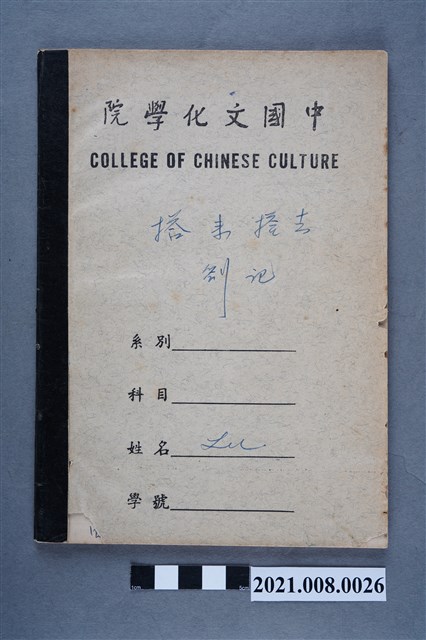 中國文化學院
COLLEGE OF CHINESE CULTURE
搭來搭去
別記
系別
科目
姓名 Lu
學號
12
1cm 5cm
2021.008.0026